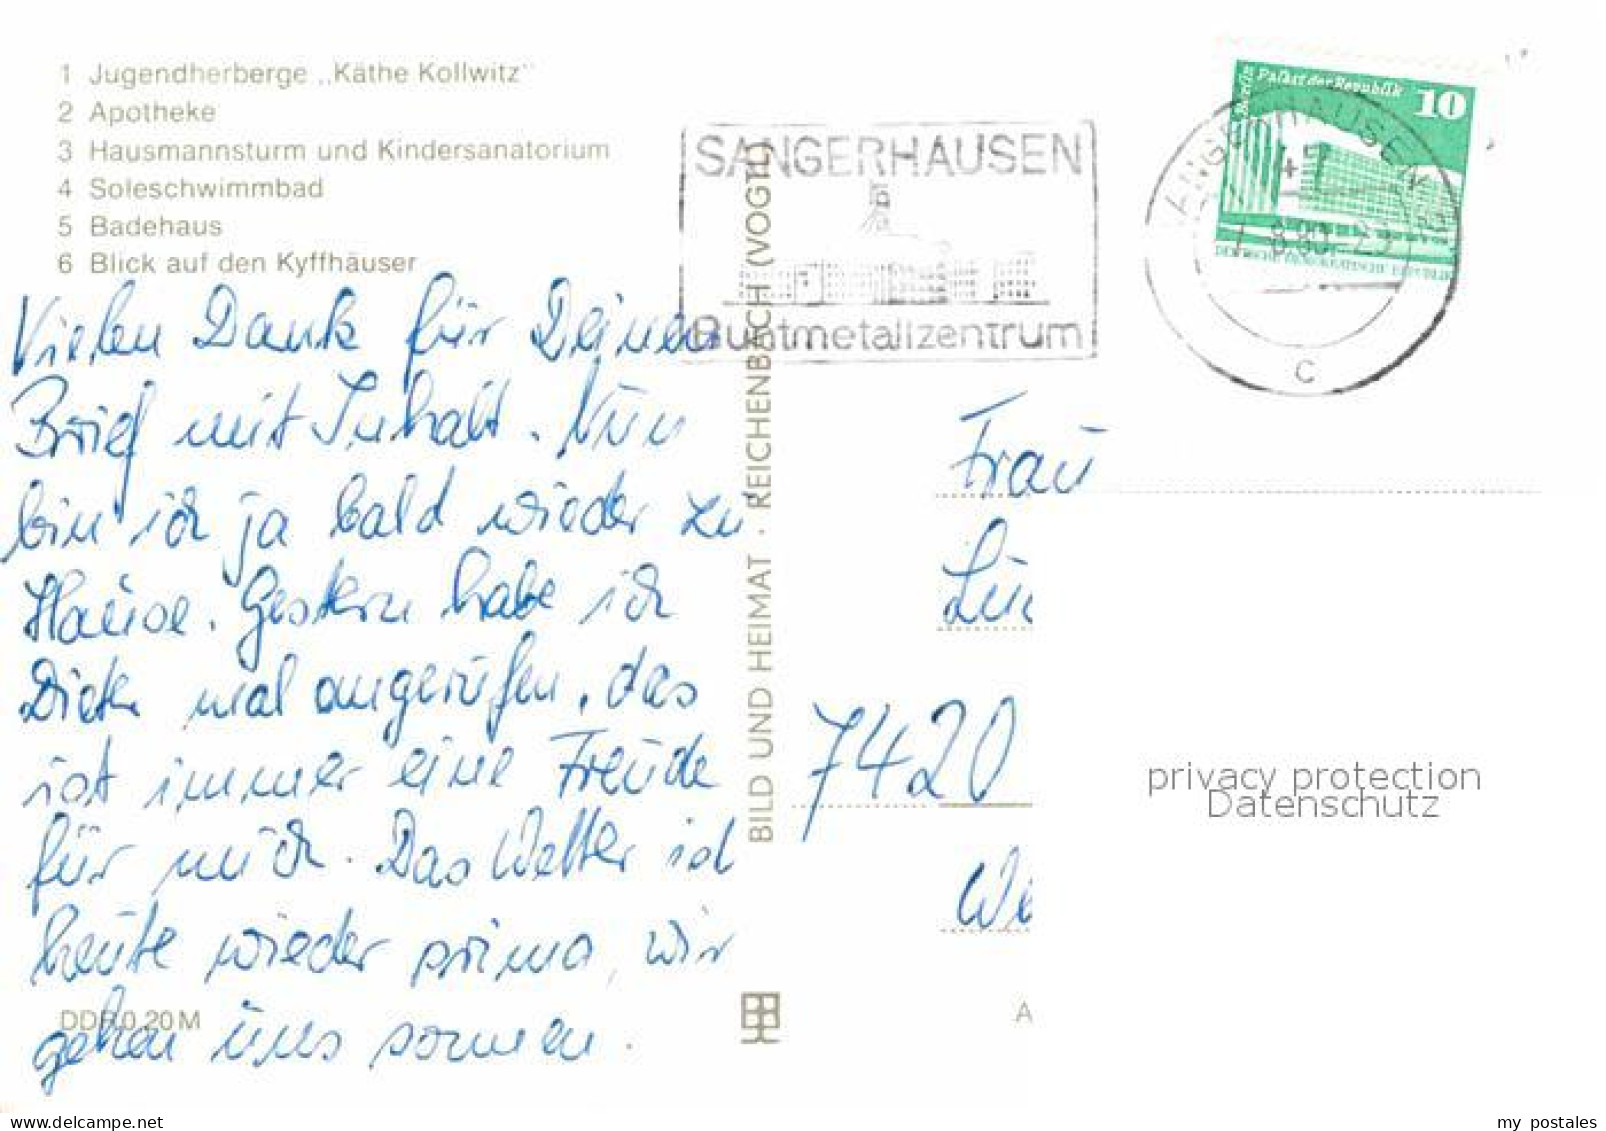 1 Jugendherberge „Käthe Kollwitz"
2 Apotheke
3 Hausmannsturm und Kindersanatorium
4 Soleschwimmbad
5 Badehaus
6 Blick auf den Kyffhäuser
Vielen Dank für Deinen
Brief mit Inhalt. Nun
bin ich ja bald wieder zu
Hause. Gestern habe ich
Dieter mal angerufen, das
ist immer eine Freude
für mich. Das Wetter ist
heute wieder prima, wir
gehen uns sonnen.
DDR 0,20 M
BILD UND HEIMAT · REICHENBACH (VOGTL)
SANGERHAUSEN
Buntmetallzentrum
Berlin Palast der Republik 10
DEUTSCHE DEMOKRATISCHE REPUBLIK
SANGERHAUSEN
c
Frau
7420
We
A
privacy protection
Datenschutz
www.delcampe.net
my_postales